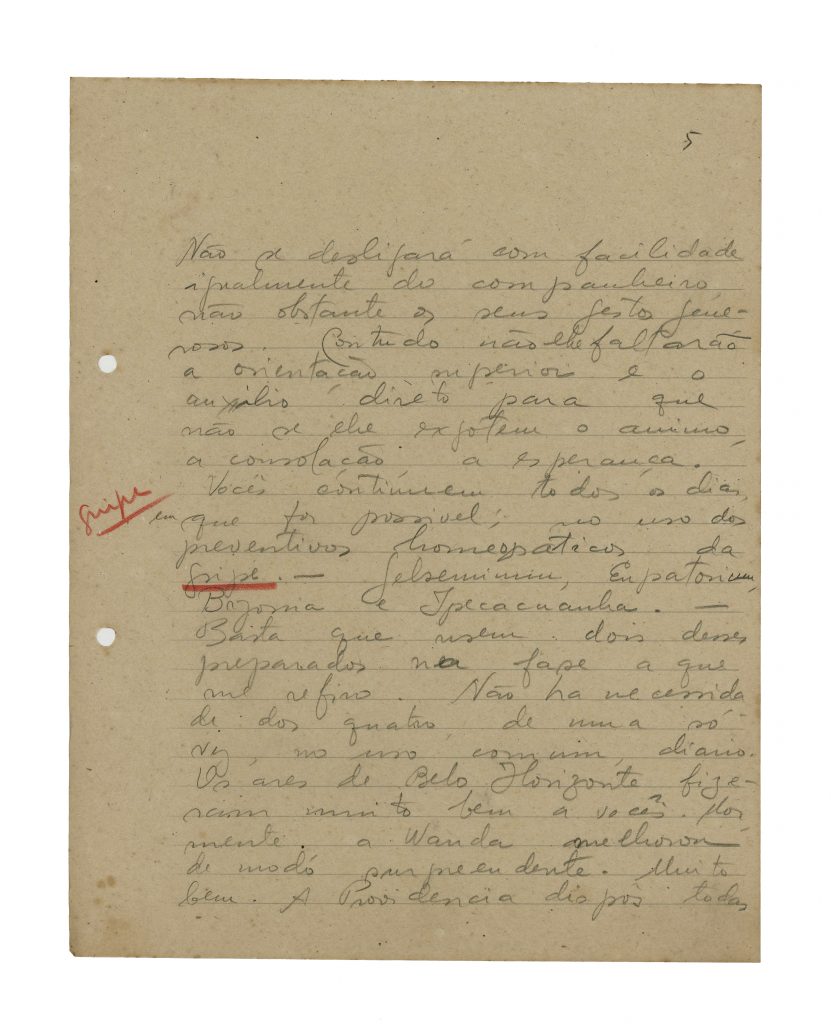 5
Não se desligará com facilidade
igualmente do companheiro,
não obstante os seus gestos gene-
rosos. Contudo não lhe faltarão
a orientação superior e o
auxilio direto para que
não se lhe exgotem o animo,
a consolação, a esperança.
Vocês continuem todos os dias,
gripe em que for possivel, no uso dos
preventivos homeopáticos da
gripe. — Gelseminum, Eupatorium,
Bryonia e Ipecacuanha. —
Basta que usem dois desses
preparados na fase a que
me refiro. Não ha necessida
de dos quatro, de uma só
vez, no uso comum, diario.
Os ares de Belo Horizonte fize-
ram muito bem a vocês. Mor
mente a Wanda melhorou
de modo surpreendente. Muito
bem. A Providencia dispôs todas